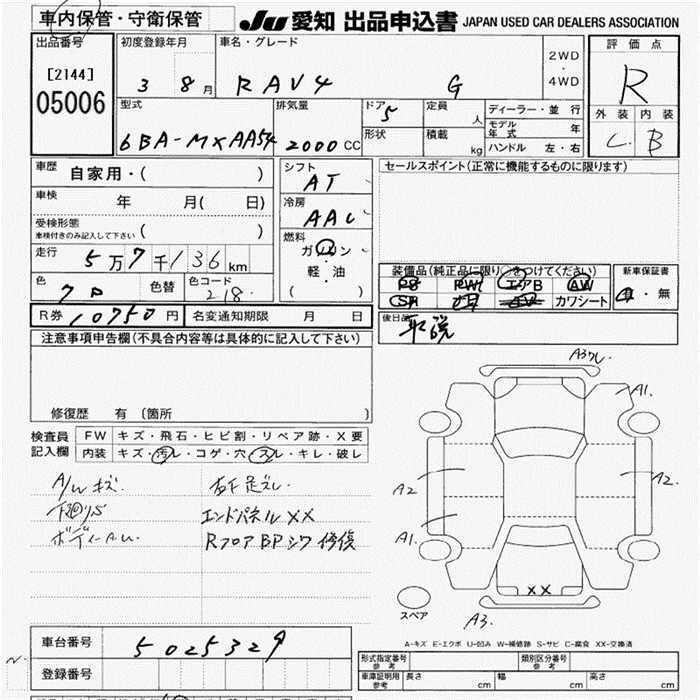 車内保管・守衛保管
JU 愛知 出品申込書 JAPAN USED CAR DEALERS ASSOCIATION
出品番号 初度登録年月 車名・グレード 2WD・4WD 評価点
[2144] 3 8月 RAV4 G R
05006
型式 排気量 ドア 5 定員 人 ディーラー・並行 外装 内装
6BA-MXAA54 2000CC 形状 積載 kg モデル年式 年 C B
ハンドル 左・右
車歴 自家用・( ) シフト AT セールスポイント(正常に機能するものに限ります)
車検 年 月( 日) 冷房 AAC
受検形態 車検付きのみ記入して下さい ( )
燃料 ガソリン・軽・油 ( )
走行 5万7千136km
装備品(純正品に限り○をつけてください) 新車保証書
色 色替 色コード 218 PS PW エアB AW 有・無
SR カワシート
R券 10750円 名変通知期限 月 日 後日品 取説
注意事項申告欄(不具合内容等は具体的に記入して下さい)
修復歴 有 (箇所 )
検査員記入欄 FW キズ・飛石・ヒビ割・リペア跡・X要
内装 キズ・汚レ・コゲ・穴・スレ・キレ・破レ
A/Wキズ
エンドパネルXX
RフロアBPシワ修復
A1.
A2
A2.
A1.
XX
スペア
A3.
A-キズ E-エクボ U-凹み W-補修跡 S-サビ C-腐食 XX-交換済
車台番号 5025329
登録番号
型式指定番号 参考 類別区分番号 参考
車庫証明用 参考 長さ cm 幅 cm 高さ cm